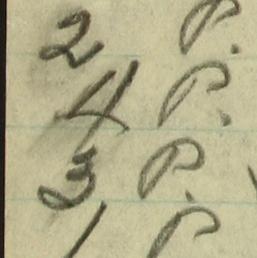 2 P.
4 P.
3 P.
1 P